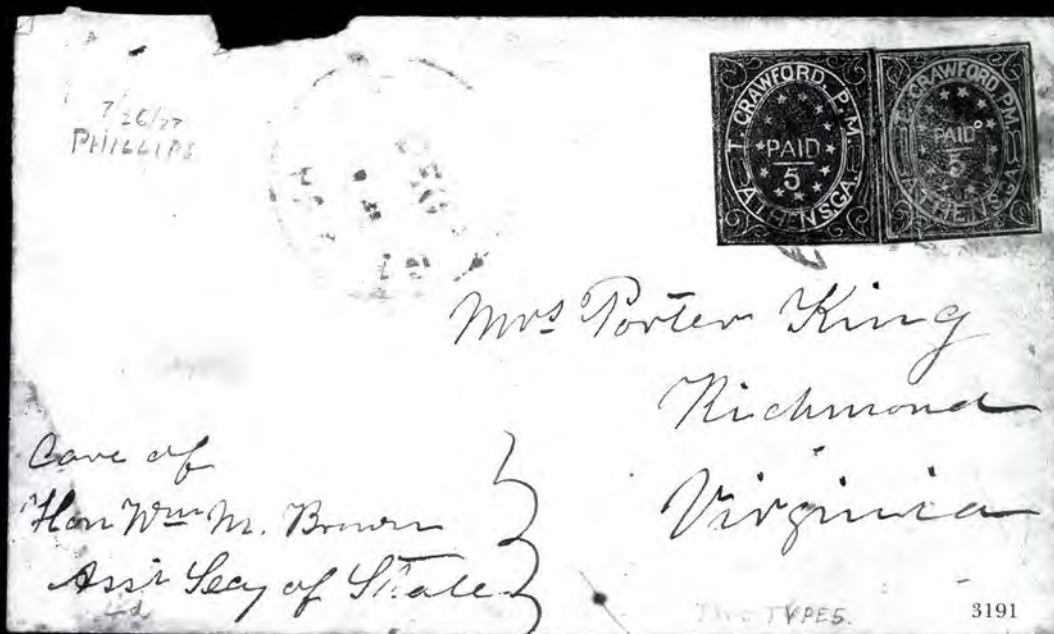 7/26/27
PHILLIPS
T. CRAWFORD, P.M.
PAID
5
ATHENS, GA.
T. CRAWFORD, P.M.
PAID
5
ATHENS, GA.
Mrs Porter King
Richmond
Virginia
Care of
Hon Wm M. Brown
Asst Secy of State
TWO TYPES.
3191